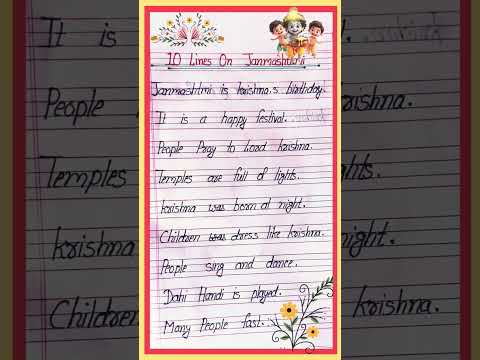 10 Lines On Janmashtmi
Janmashtmi is krishna,s birthday.
It is a happy festival.
People Pray to Lord krishna.
Temples are full of lights.
krishna was born at night.
Children was dress like krishna.
People sing and dance.
Dahi Handi is played.
Many People fast.
It is
People
Temples
krishna
Children
krishna.
lights.
night.
krishna.